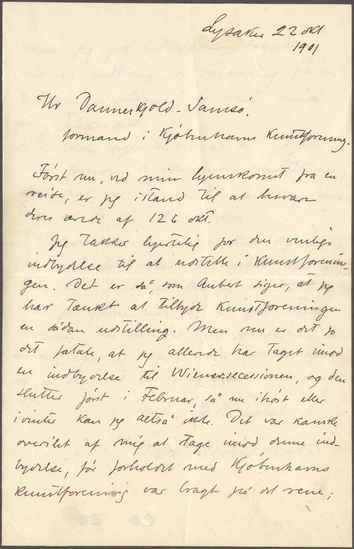 Lysaker 22 okt
1901
Hr Danneskjold-Samsö.
formand i Kjöbenhavns Kunstforening.
Först nu, ved min hjemkomst fra en
reise, er jeg istand til at besvare
deres ærede af 12te okt.
Jeg takker hjertelig for den venlige
indbydelse til at udstille i Kunstforenin-
gen. Det er så, som Aubert siger, at jeg
har tænkt at tilbyde Kunstforeningen
en sådan udstilling. Men nu er det så
det fatale, at jeg allerede har taget imod
en indbydelse til Wienersecessionen, og den
slutter först i Februar, så nu ihöst eller
ivinter kan jeg altså ikke. Det var kanske
overilet af mig at tage imod denne ind-
bydelse, för forholdet med Kjöbenhavns
Kunstforening var bragt på det rene;